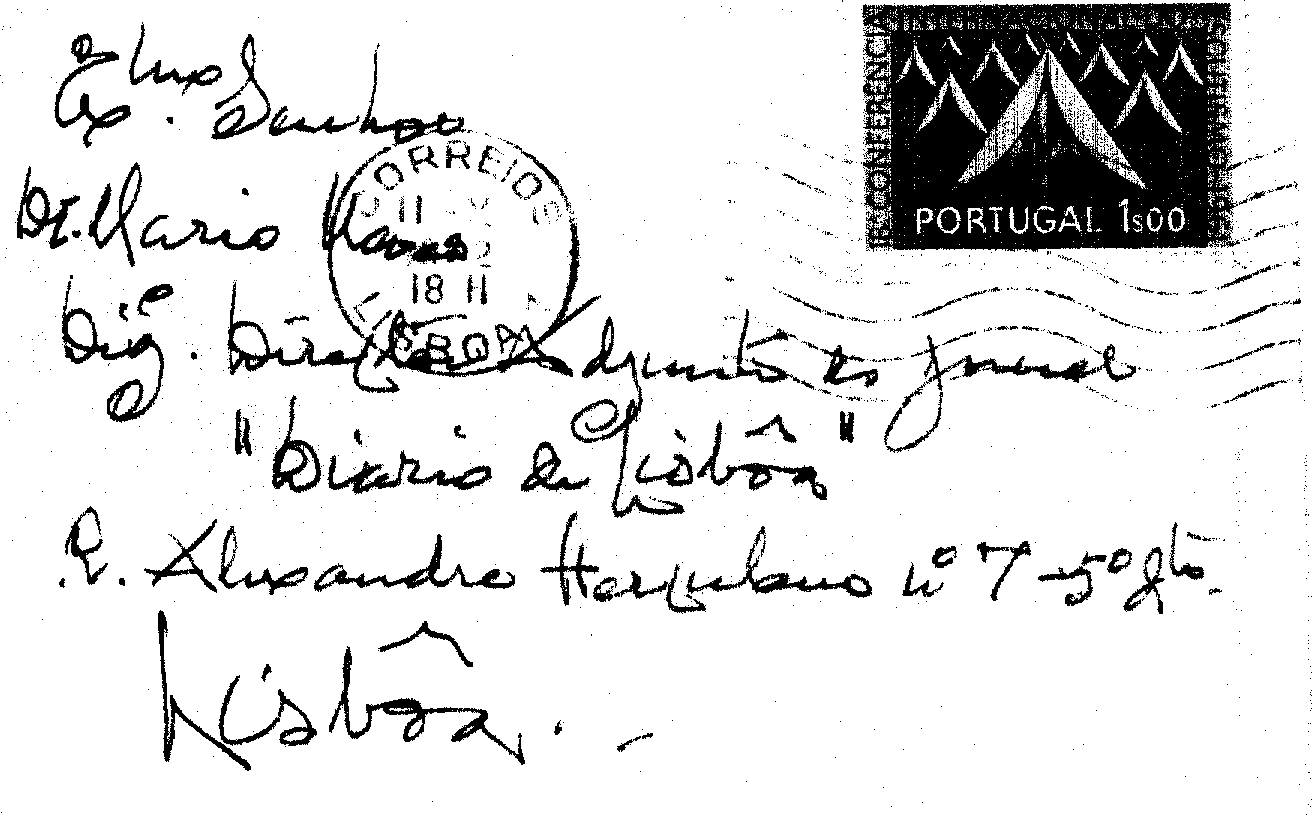 Exmo. Senhor
Dr. Mario Neves
Digº. Director Adjunto do Jornal
"Diario de Lisbôa"
R. Alexandre Herculano nº 7-5º Dto.
Lisbôa.
CORREIOS
11 V
18 H
LISBOA
CONFERENCIA INTERNACIONAL
PORTUGAL 1$00